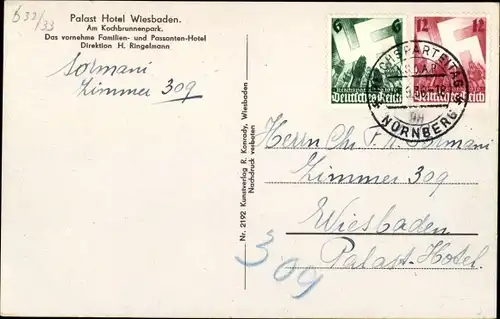 632/33
Palast Hotel Wiesbaden.
Am Kochbrunnenpark.
Das vornehme Familien- und Passanten-Hotel
Direktion H. Ringelmann
Sormani
Zimmer 309
Nr. 2192 Kunstverlag R. Konrady, Wiesbaden
Nachdruck verboten
6
Deutsches Reich
12
Deutsches Reich
REICHSPARTEITAG
NSDAP
NÜRNBERG
Herrn Ch. Sormani
Zimmer 309
Wiesbaden
Palast-Hotel.
309